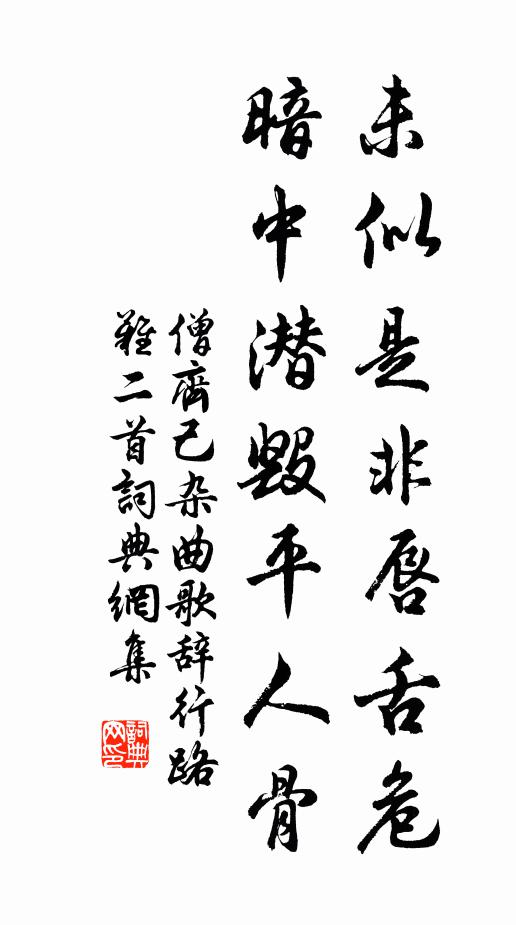 未似是非唇舌危
暗中潜毁平人骨
僧齊己杂曲歌辞行路
難二首詞典網集
詞典
网印